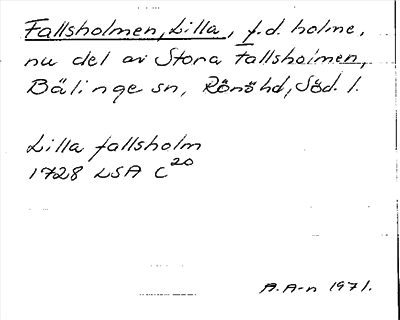 Fallsholmen, Lilla, f.d. holme,
nu del av Stora Fallsholmen,
Bälinge sn, Rönöhd, Söd. l.
Lilla fallsholm
1728 LSA C20
A.A-n 1971.